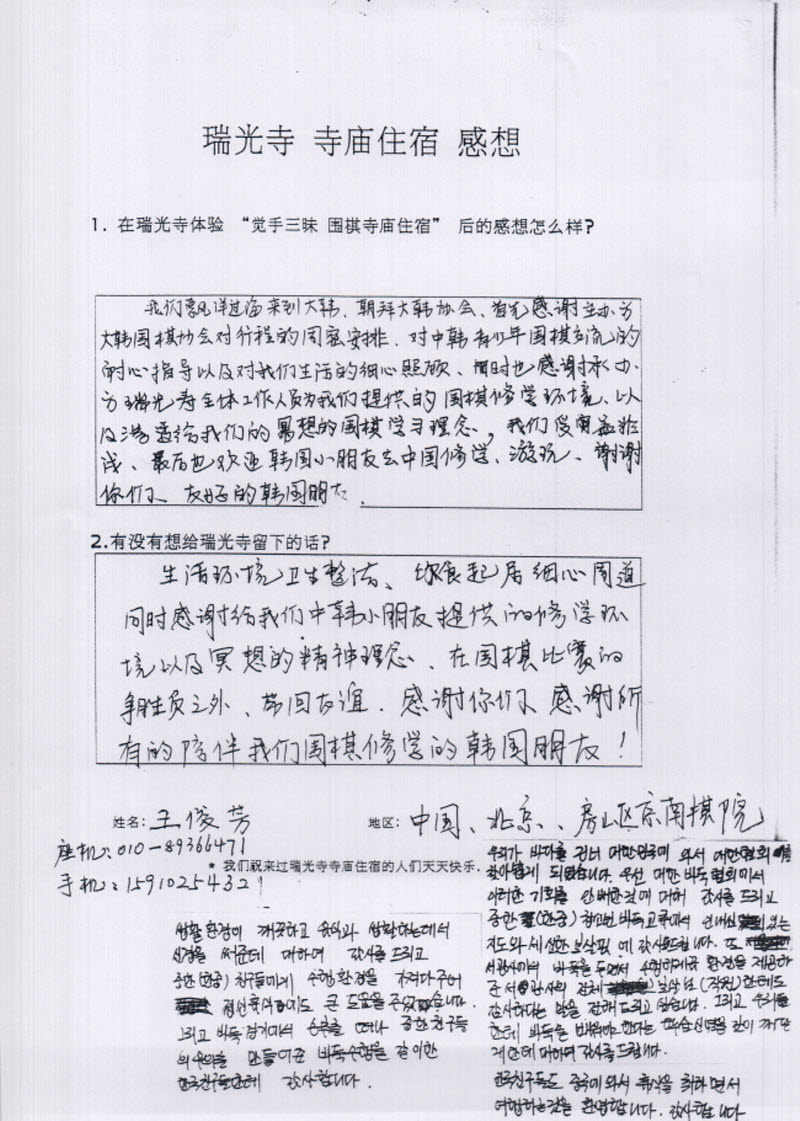 瑞光寺 寺庙住宿 感想
1. 在瑞光寺体验 “觉手三昧 围棋寺庙住宿” 后的感想怎么样?
我们飘洋过海来到大韩、朝拜大韩协会、首先感谢主办方
大韩围棋协会对行程的周密安排、对中韩青少年围棋交流的
耐心指导以及对我们生活的细心照顾、同时也感谢承办
方瑞光寺全体工作人员为我们提供的围棋修学环境、以
及渗透给我们的冥想的围棋学习理念, 我们受益匪
浅、最后也欢迎韩国小朋友去中国修学、游玩、谢谢
你们、友好的韩国朋友.
2.有没有想给瑞光寺留下的话?
生活环境卫生整洁、饮食起居细心周道
同时感谢给我们中韩小朋友提供的修学环
境以及冥想的精神理念、在围棋比赛的
争胜负之外、带回友谊. 感谢你们 感谢所
有的陪伴我们围棋修学的韩国朋友!
姓名: 王俊芳
地区: 中国、北京、房山区京南棋院
座机: 010-89366471
* 我们祝来过瑞光寺寺庙住宿的人们天天快乐.
手机: 15910254321
우리가 바다를 건너 대한민국에 와서 대한협회
찾아뵙게 되었습니다. 우선 대한바둑협회에서
이러한 기회를 안배한것에 대해 감사를 드리고
중한 (한중) 청소년 바둑교류에서 인내심 있는
지도와 세심한 보살핌에 감사드립니다. 또
서광사에서 바둑을 두면서 수행하게끔 환경을 제공해
준 서광사의 전체 보살님 (직원)한테도
감사하다는 말을 전해드리고 싶습니다. 그리고 우리들
한테 바둑을 배워야한다는 학습신념을 같이
대하여 감사를 드립니다.
한국친구들도 중국에 와서 휴식을 취하면서
여행하는것을 환영합니다. 감사합니다
생활환경이 깨끗하고 음식과 생활하는데서
신경을 써준데 대하여 감사를 드리고
중한 (한중) 친구들에게 수행환경을 가져다주어
정신휴식하기도 큰 도움을 주었습니다.
그리고 바둑경기에서 승부를 떠나 중한친구들
의 우의를 만들어준 바둑수행을 같이한
한국친구들한테 감사합니다.